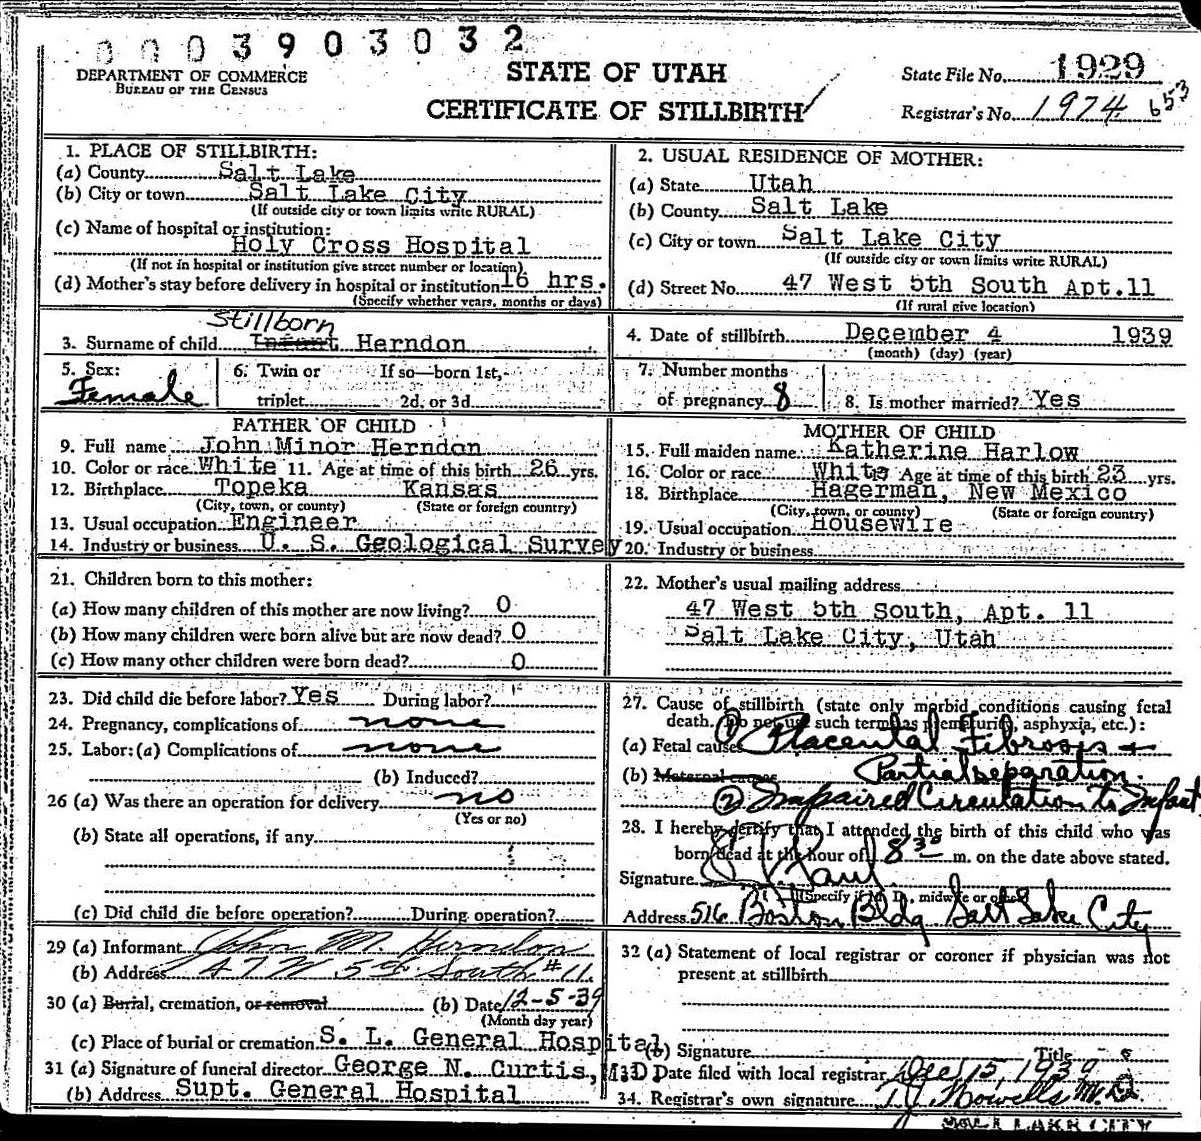 0003903032
DEPARTMENT OF COMMERCE
BUREAU OF THE CENSUS
STATE OF UTAH
CERTIFICATE OF STILLBIRTH
State File No. 1929
Registrar's No. 1974 653
1. PLACE OF STILLBIRTH:
(a) County Salt Lake
(b) City or town Salt Lake City
(If outside city or town limits write RURAL)
(c) Name of hospital or institution:
Holy Cross Hospital
(If not in hospital or institution give street number or location)
(d) Mother's stay before delivery in hospital or institution 16 hrs.
(Specify whether years, months or days)
2. USUAL RESIDENCE OF MOTHER:
(a) State Utah
(b) County Salt Lake
(c) City or town Salt Lake City
(If outside city or town limits write RURAL)
(d) Street No. 47 West 5th South Apt.11
(If rural give location)
Stillborn
3. Surname of child Infant Herndon
4. Date of stillbirth December 4 1939
(month) (day) (year)
5. Sex: Female
6. Twin or triplet If so—born 1st, 2d, or 3d
7. Number months of pregnancy 8
8. Is mother married? Yes
FATHER OF CHILD
9. Full name John Minor Herndon
10. Color or race White 11. Age at time of this birth 26 yrs.
12. Birthplace Topeka Kansas
(City, town, or county) (State or foreign country)
13. Usual occupation Engineer
14. Industry or business U. S. Geological Survey
MOTHER OF CHILD
15. Full maiden name Katherine Harlow
16. Color or race White Age at time of this birth 23 yrs.
18. Birthplace Hagerman, New Mexico
(City, town, or county) (State or foreign country)
19. Usual occupation Housewife
20. Industry or business
21. Children born to this mother:
(a) How many children of this mother are now living? 0
(b) How many children were born alive but are now dead? 0
(c) How many other children were born dead? 0
22. Mother's usual mailing address
47 West 5th South, Apt. 11
Salt Lake City, Utah
23. Did child die before labor? Yes During labor?
24. Pregnancy, complications of none
25. Labor: (a) Complications of none
(b) Induced?
26 (a) Was there an operation for delivery no
(Yes or no)
(b) State all operations, if any
(c) Did child die before operation? During operation?
27. Cause of stillbirth (state only morbid conditions causing fetal
death. Do not use such terms as prematurity, asphyxia, etc.):
(a) Fetal causes ① Placental Fibrosis +
(b) Maternal causes Partial separation.
② Impaired Circulation to Infant
28. I hereby certify that I attended the birth of this child who was
born dead at the hour of 8 30 m. on the date above stated.
Signature
(Specify if M. D., midwife or other)
Address 516 Boston Bldg Salt Lake City
29 (a) Informant John M. Herndon
(b) Address 47 W 5th South #11.
30 (a) Burial, cremation, or removal (b) Date 12-5-39
(Month day year)
(c) Place of burial or cremation S. L. General Hospital
31 (a) Signature of funeral director George N. Curtis, M.D.
(b) Address Supt. General Hospital
32 (a) Statement of local registrar or coroner if physician was not
present at stillbirth
(b) Signature Title
33. Date filed with local registrar Dec 15, 1939
34. Registrar's own signature T J Howells M.D.
SALT LAKE CITY